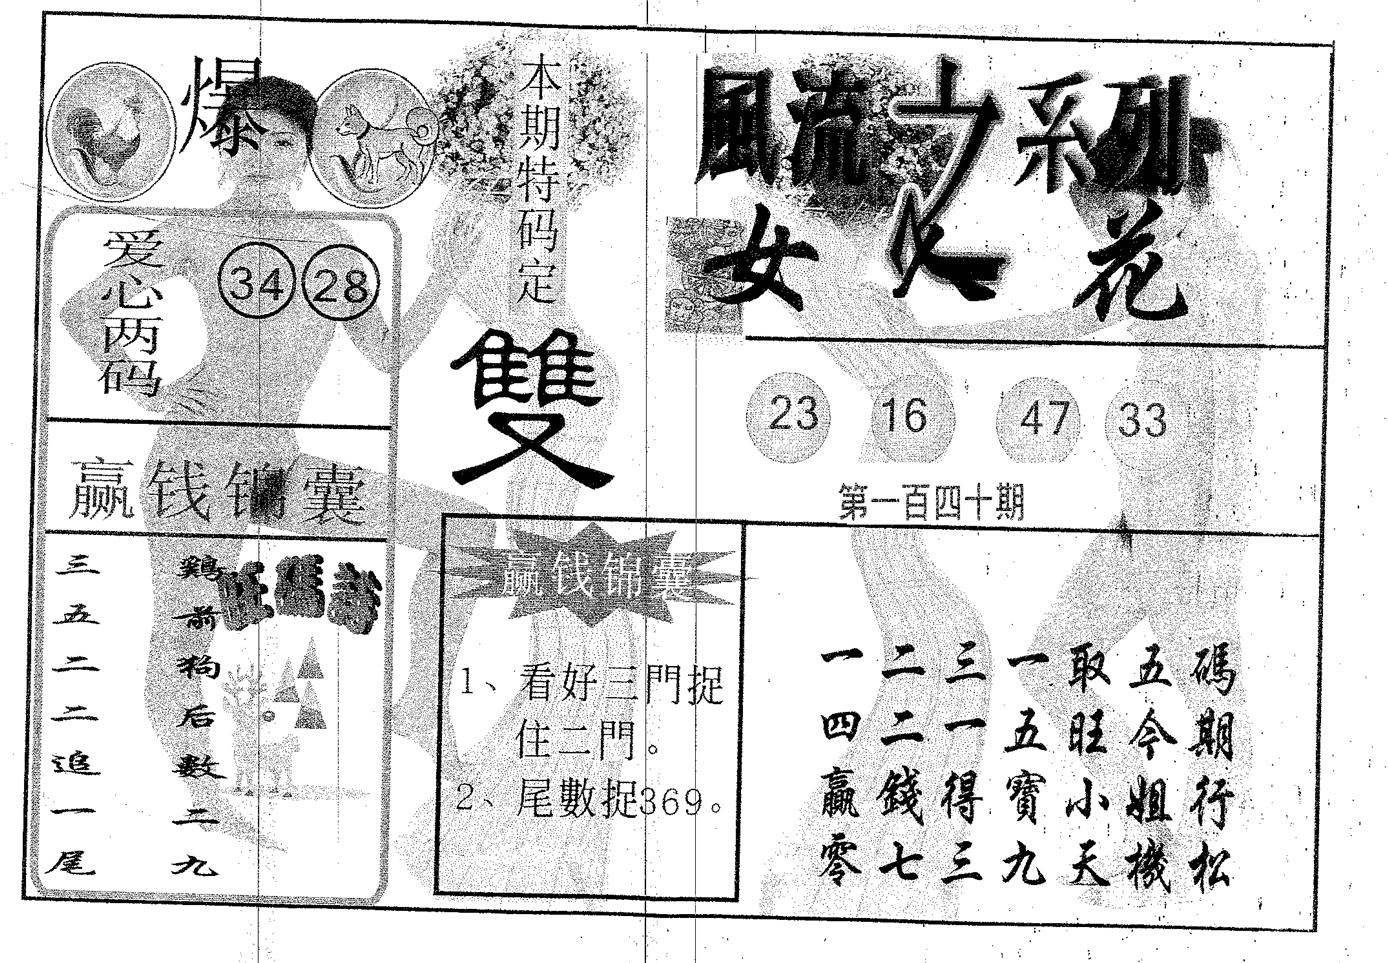 爆
本期特码定
雙
爱心两码
34 28
赢钱锦囊
旺碼詩
三五二二追一尾
鷄前狗后數二九
赢钱锦囊
1、看好三門捉
住二門。
2、尾數捉369。
風流之系列
女人花
23 16 47 33
第一百四十期
一二三一取五碼
四二一五旺今期
贏錢得寶小姐行
零七三九天機松